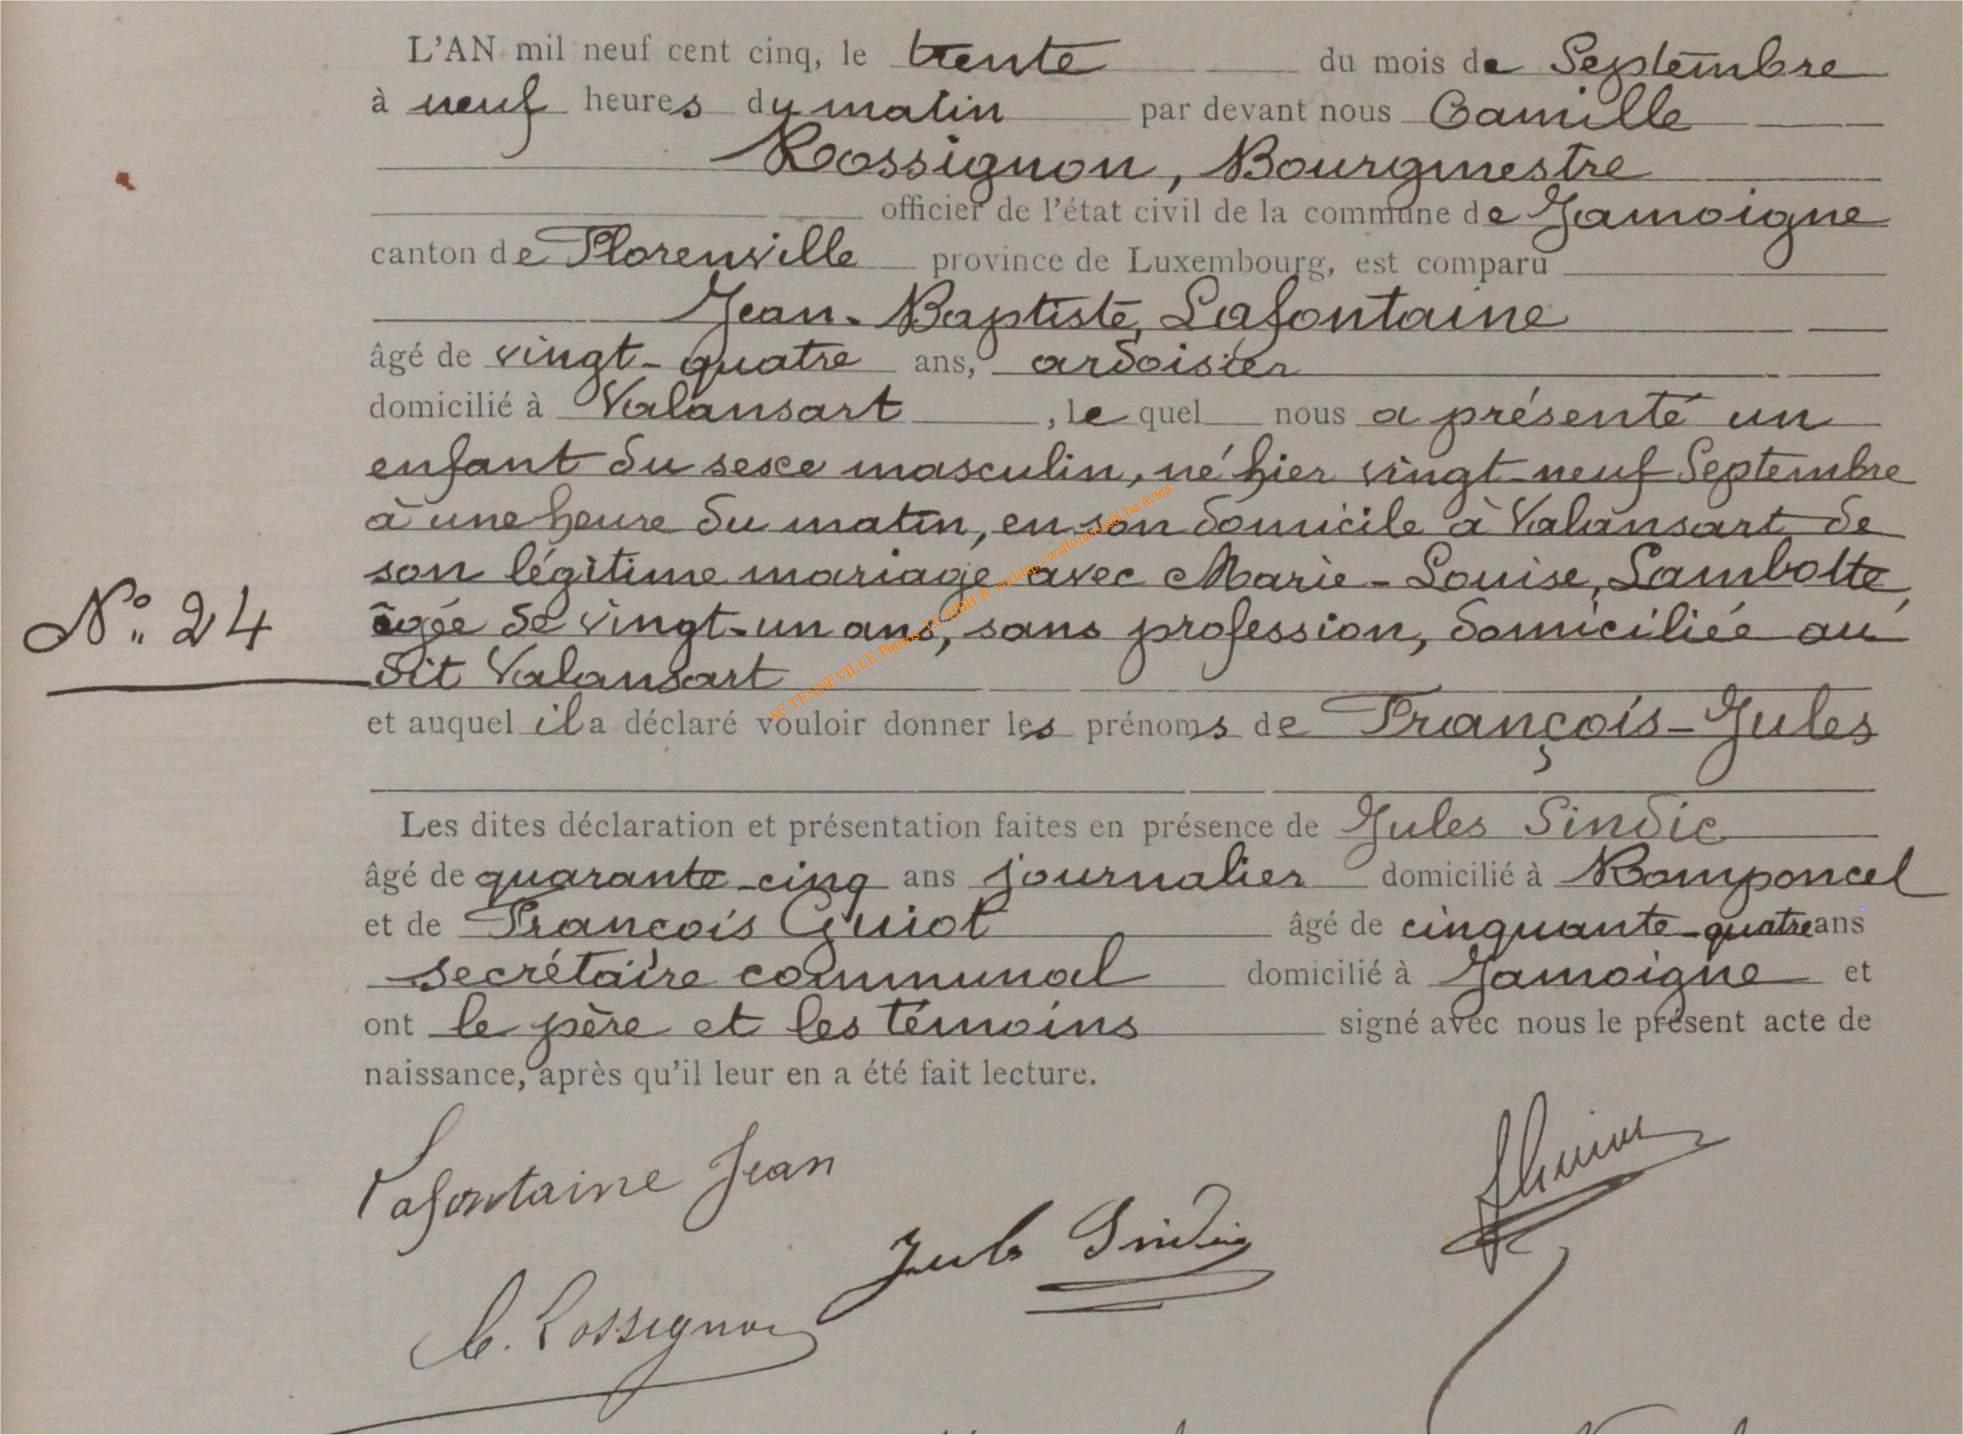 L'AN mil neuf cent cinq, le trente du mois de Septembre
à neuf heures du matin par devant nous Camille
Rossignon, Bourgmestre
officier de l'état civil de la commune de Jamoigne
canton de Florenville province de Luxembourg, est comparu
Jean-Baptiste, Lafontaine
âgé de vingt-quatre ans, ardoisier
domicilié à Valansart, le quel nous a présenté un
enfant du sexe masculin, né hier vingt-neuf Septembre
à une heure du matin, en son domicile à Valansart de
son légitime mariage avec Marie-Louise, Lambotte,
N° 24
âgée de vingt-un ans, sans profession, domiciliée au
dit Valansart
et auquel il a déclaré vouloir donner les prénoms de François-Jules
Les dites déclaration et présentation faites en présence de Jules Sindic
âgé de quarante-cinq ans journalier domicilié à Romponcel
et de François Guiot âgé de cinquante-quatre ans
secrétaire communal domicilié à Jamoigne et
ont le père et les témoins signé avec nous le présent acte de
naissance, après qu'il leur en a été fait lecture.
Lafontaine Jean
Jules Sindic
C. Rossignon
AC TENNEVILLE Photos